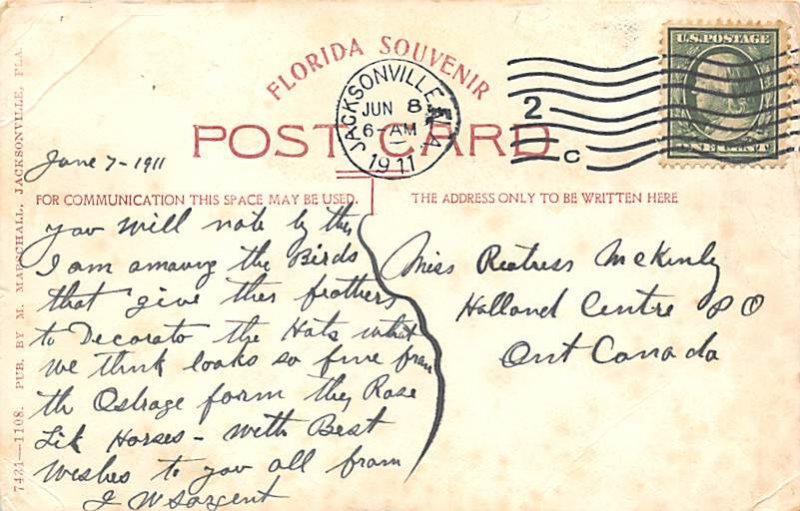 FLORIDA SOUVENIR
JACKSONVILLE, FLA.
JUN 8
6-AM
1911
2
C
U.S. POSTAGE
POST CARD
June 7-1911
FOR COMMUNICATION THIS SPACE MAY BE USED.
THE ADDRESS ONLY TO BE WRITTEN HERE
you will note by this
I am amoung the Birds
that give ther feathers
to Decorato the Hats what
we think looks so fine from
th Ostrage form they Rase
Lik Horses - with Best
wishes to you all from
J W Sargent
Miss Reatress McKinly
Holland Centre P O
Ont Canada
7421—1108. PUB. BY M. MARSCHALL, JACKSONVILLE, FLA.